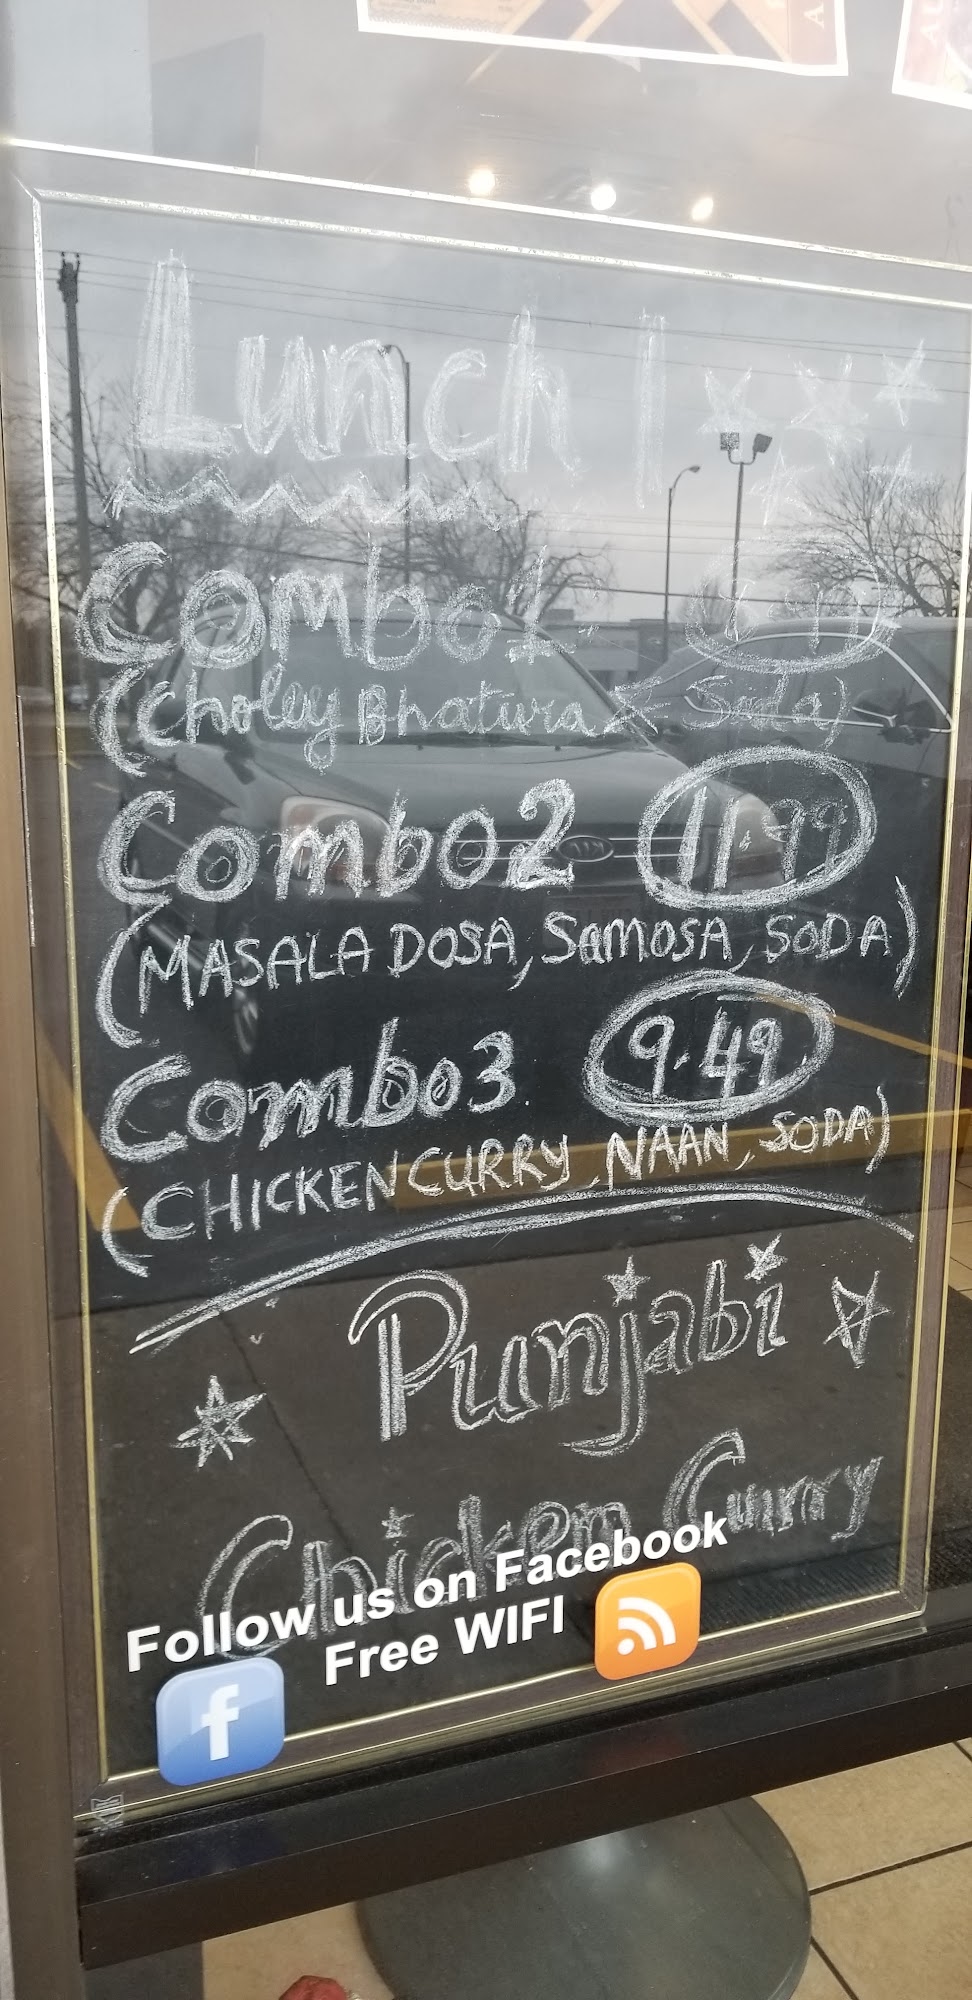 Lunch !
Combo 1
(Choley Bhatura & Soda)
Combo 2 11.99
(MASALA DOSA, SAMOSA, SODA)
Combo 3 9.49
(CHICKEN CURRY, NAAN, SODA)
Punjabi
Chicken Curry
Follow us on Facebook
Free WIFI
f